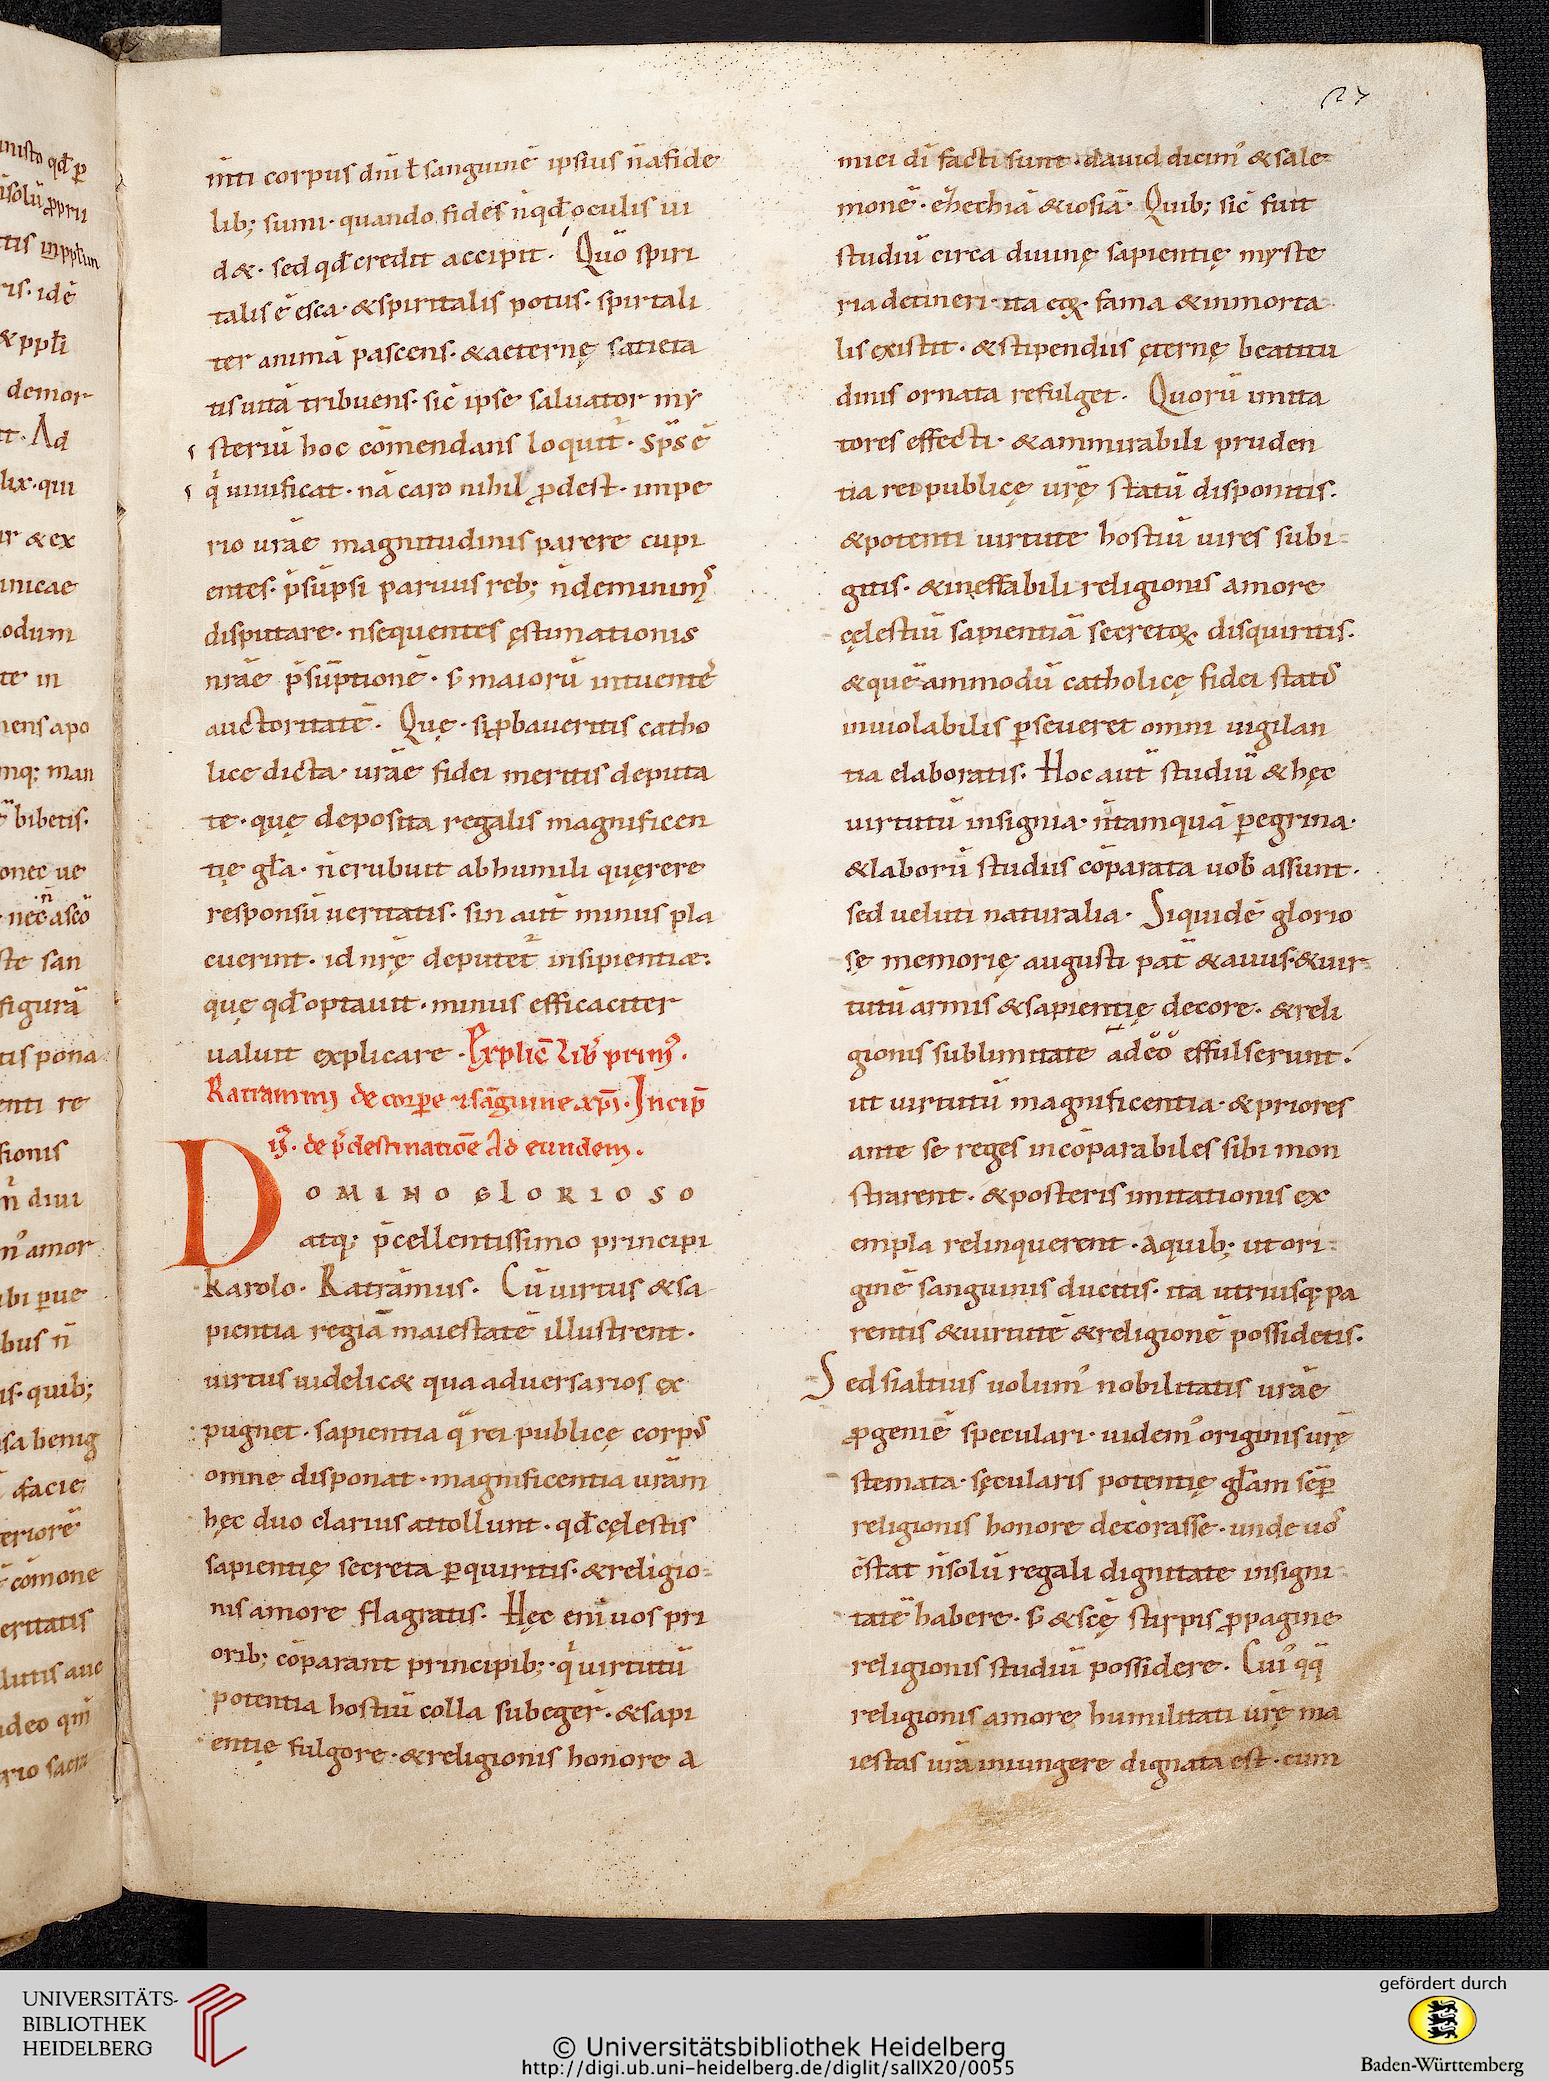 27
inti corpus dñi ł sanguinē ipsius ñ a fide
lib; sumi · quando fides ñ qđ oculis ui
d& · sed qđ credit accipit · Qūo spiri
talis ē esca · & spiritalis potus · spiritali
ter animā pascens · & aeternę satieta
tis uitā tribuens · sic ipse saluator my
steriū hoc cōmendans loquit̄ · sp̄s ē
q̇ uiuificat · nā caro nihil ꝓdest · impe
rio ur̄ae magnitudinis parere cupi
entes · p̄sūpsi paruus reb; ñ de minim᾿
disputare · ñ sequentes ęstimationis
nr̄ae p̄sūptionē · s̄ maiorū intuentes
auctoritatē · Quę · si ꝓbaueritis catho
lice dicta · ur̄ae fidei meritis deputa
te · quę deposita regalis magnificen
tię gła · ñ erubuit ab humili quęrere
responsū ueritatis · sin aut̄ minus pla
cuerint · id nr̄ę deputet̄ insipientiæ ·
quę qđ optauit · minus efficaciter
ualuit explicare · Explic̄ lib̄ prim᾿ ·
Ratrammi de corp̄e & sāguine xp̄i · Incip̄
ii᾿ · de p̄destinatiōe Ad eundem ·
DOMINO GLORIOSO
atq; p̄cellentissimo principi
karolo · Ratrāmus · Cū uirtus & sa
pientia regiā maiestatē illustrent ·
uirtus uidelic& qua aduersarios ex
pugnet · sapientia q̄ rei publicę corp᾿
omne disponat · magnificentiā ur̄am
hęc duo clarius attollunt · qđ cęlestis
sapientię secreta ꝑquiritis · & religio
nis amore flagratis · Hęc enī uos pri
orib; cōparant principib; · q̇ uirtutū
potentia hostiū colla subeger̄ · & sapi
entię fulgore · & religionis honore a
mici dī facti sunt · dauid dicim᾿ & salo
monē · ezechiā & iosiā · Quib; sic fuit
studiū circa diuinę sapientię myste
ria detineri · ita eoꝝ · fama & inmorta
lis existit · & stipendiis ęternę beatitu
dinis ornata refulget · Quorū imita
tores effecti · & ammirabili pruden
tia rei publicę ur̄ę statū disponitis ·
& potenti uirtute hostiū uires subi
gitis · & ineffabili religionis amore
cęlestiū sapientiā secretoꝝ disquiritis ·
& quēammodū catholicę fidei stat᾿
inuiolabilis ꝑseueret omni uigilan
tia elaboratis · Hoc aut̄ studiū & hęc
uirtutū insignia · ñ tamquā ꝑegrina ·
& laborū studiis cōparata uob̄ assunt ·
sed ueluti naturalia · Siquidē glorio
sę memorię augusti pat̄ & auus · & uir
tutū armis & sapientię decore · & reli
gionis sublimitate adeo effulserunt ·
ut uirtutū magnificentia · & priores
ante se reges incōparabiles sibi mon
strarent · & posteris imitationis ex
empla relinquerent · A quib; ut ori
ginē sanguinis ducitis · ita utriusq; pa
rentis & uirtutē & religionē possidetis ·
Sed si altius uolum᾿ nobilitatis ur̄ae
ꝓgeniē speculari · uidem᾿ originis ur̄ę
stemata · sęcularis potentię głam sēp̄
religionis honore decorasse · unde uos
c̄stat ñ solū regali dignitate insigni
tatē habere · s̄ & sc̄ę stirpis ꝓpagine
religionis studiū possidere · Cui᾿ q̄q̄
religionis amore humilitati ur̄ę ma
iestas ur̄a iniungere dignata est · cum
UNIVERSITÄTS-
BIBLIOTHEK
HEIDELBERG
© Universitätsbibliothek Heidelberg
http://digi.ub.uni-heidelberg.de/diglit/salIX20/0055
gefördert durch
Baden-Württemberg